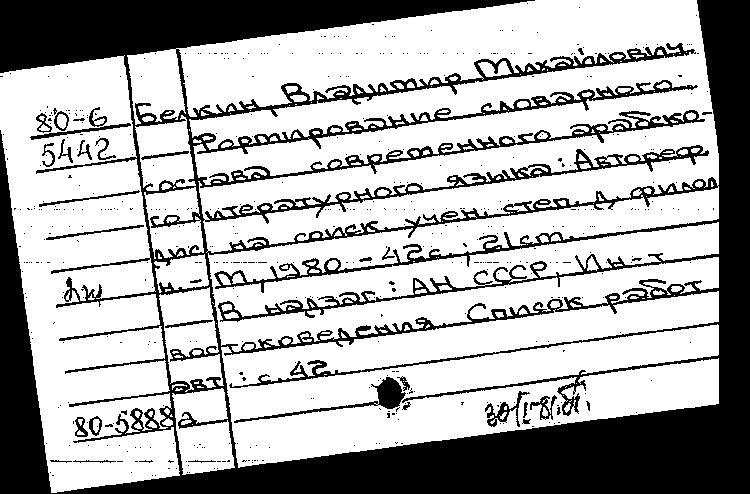 80-6
5442
Белкин, Владимир Михайлович.
Формирование словарного
состава современного арабско-
го литературного языка: Автореф.
дис. на соиск. учен. степ. д. филол.
н. - М., 1980. - 42с.; 21см.
В надзаг.: АН СССР, Ин-т
востоковедения. Список работ
авт.: с. 42.
80-5888а